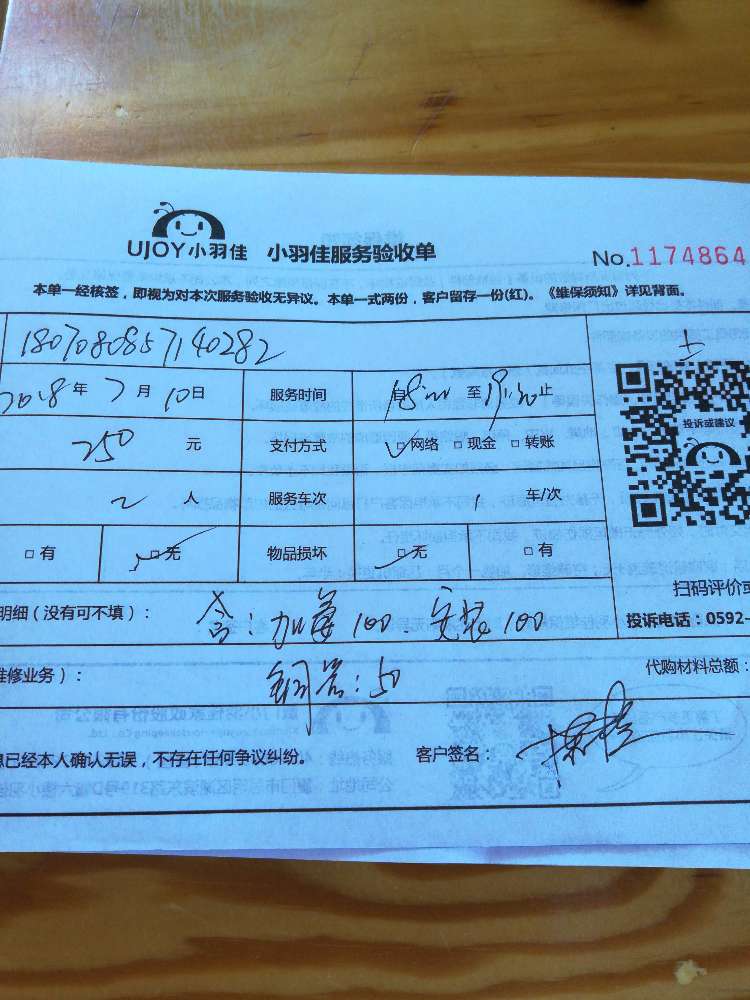 UJOY小羽佳 小羽佳服务验收单 No.1174864
本单一经核签,即视为对本次服务验收无异议。本单一式两份,客户留存一份(红)。《维保须知》详见背面。
1807080857140282
2018年7月10日 服务时间 自18:00至19:30止
投诉或建议
250元 支付方式 □网络 □现金 □转账
2人 服务车次 1 车/次
□有 □无 物品损坏 □无 □有
扫码评价或
明细(没有可不填): 含:加 100、安装100
投诉电话:0592-
维修业务): 铜管:50 代购材料总额:
息已经本人确认无误,不存在任何争议纠纷。 客户签名: